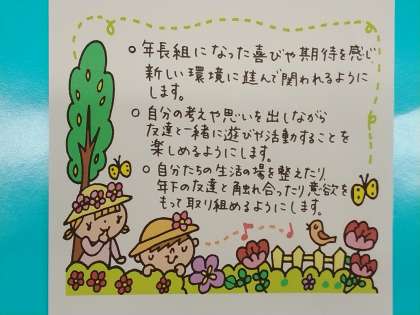 ○ 年長組になった喜びや期待を感じ
新しい環境に進んで関われるように
します。
○ 自分の考えや思いを出しながら
友達と一緒に遊びや活動することを
楽しめるようにします。
○ 自分たちの生活の場を整えたり、
年下の友達と触れ合ったり意欲を
もって取り組めるようにします。